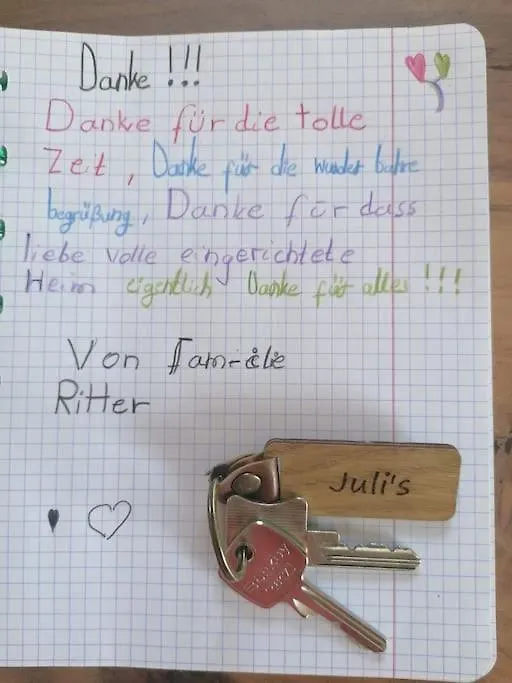 Danke !!!
Danke für die tolle
Zeit, Danke für die wunder bahre
begrüßung, Danke för dass
liebe volle eingerichtete
Heim eigentlich Danke für alles !!!
Von Fam-ilie
Ritter
Juli's